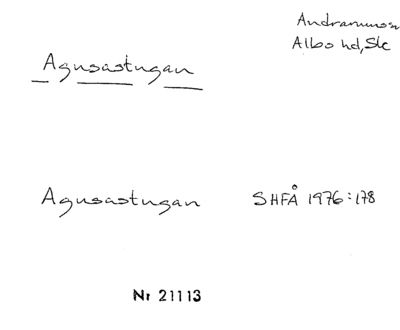 Andrarums sn
Albo hd, Sk
Agusastugan
Agusastugan SHFÅ 1976:178
Nr 21113